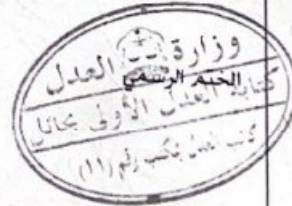 وزارة العدل
الختم الرسمي
كتابة العدل الأولى بحائل
كاتب العدل بمكتب رقم (١١)